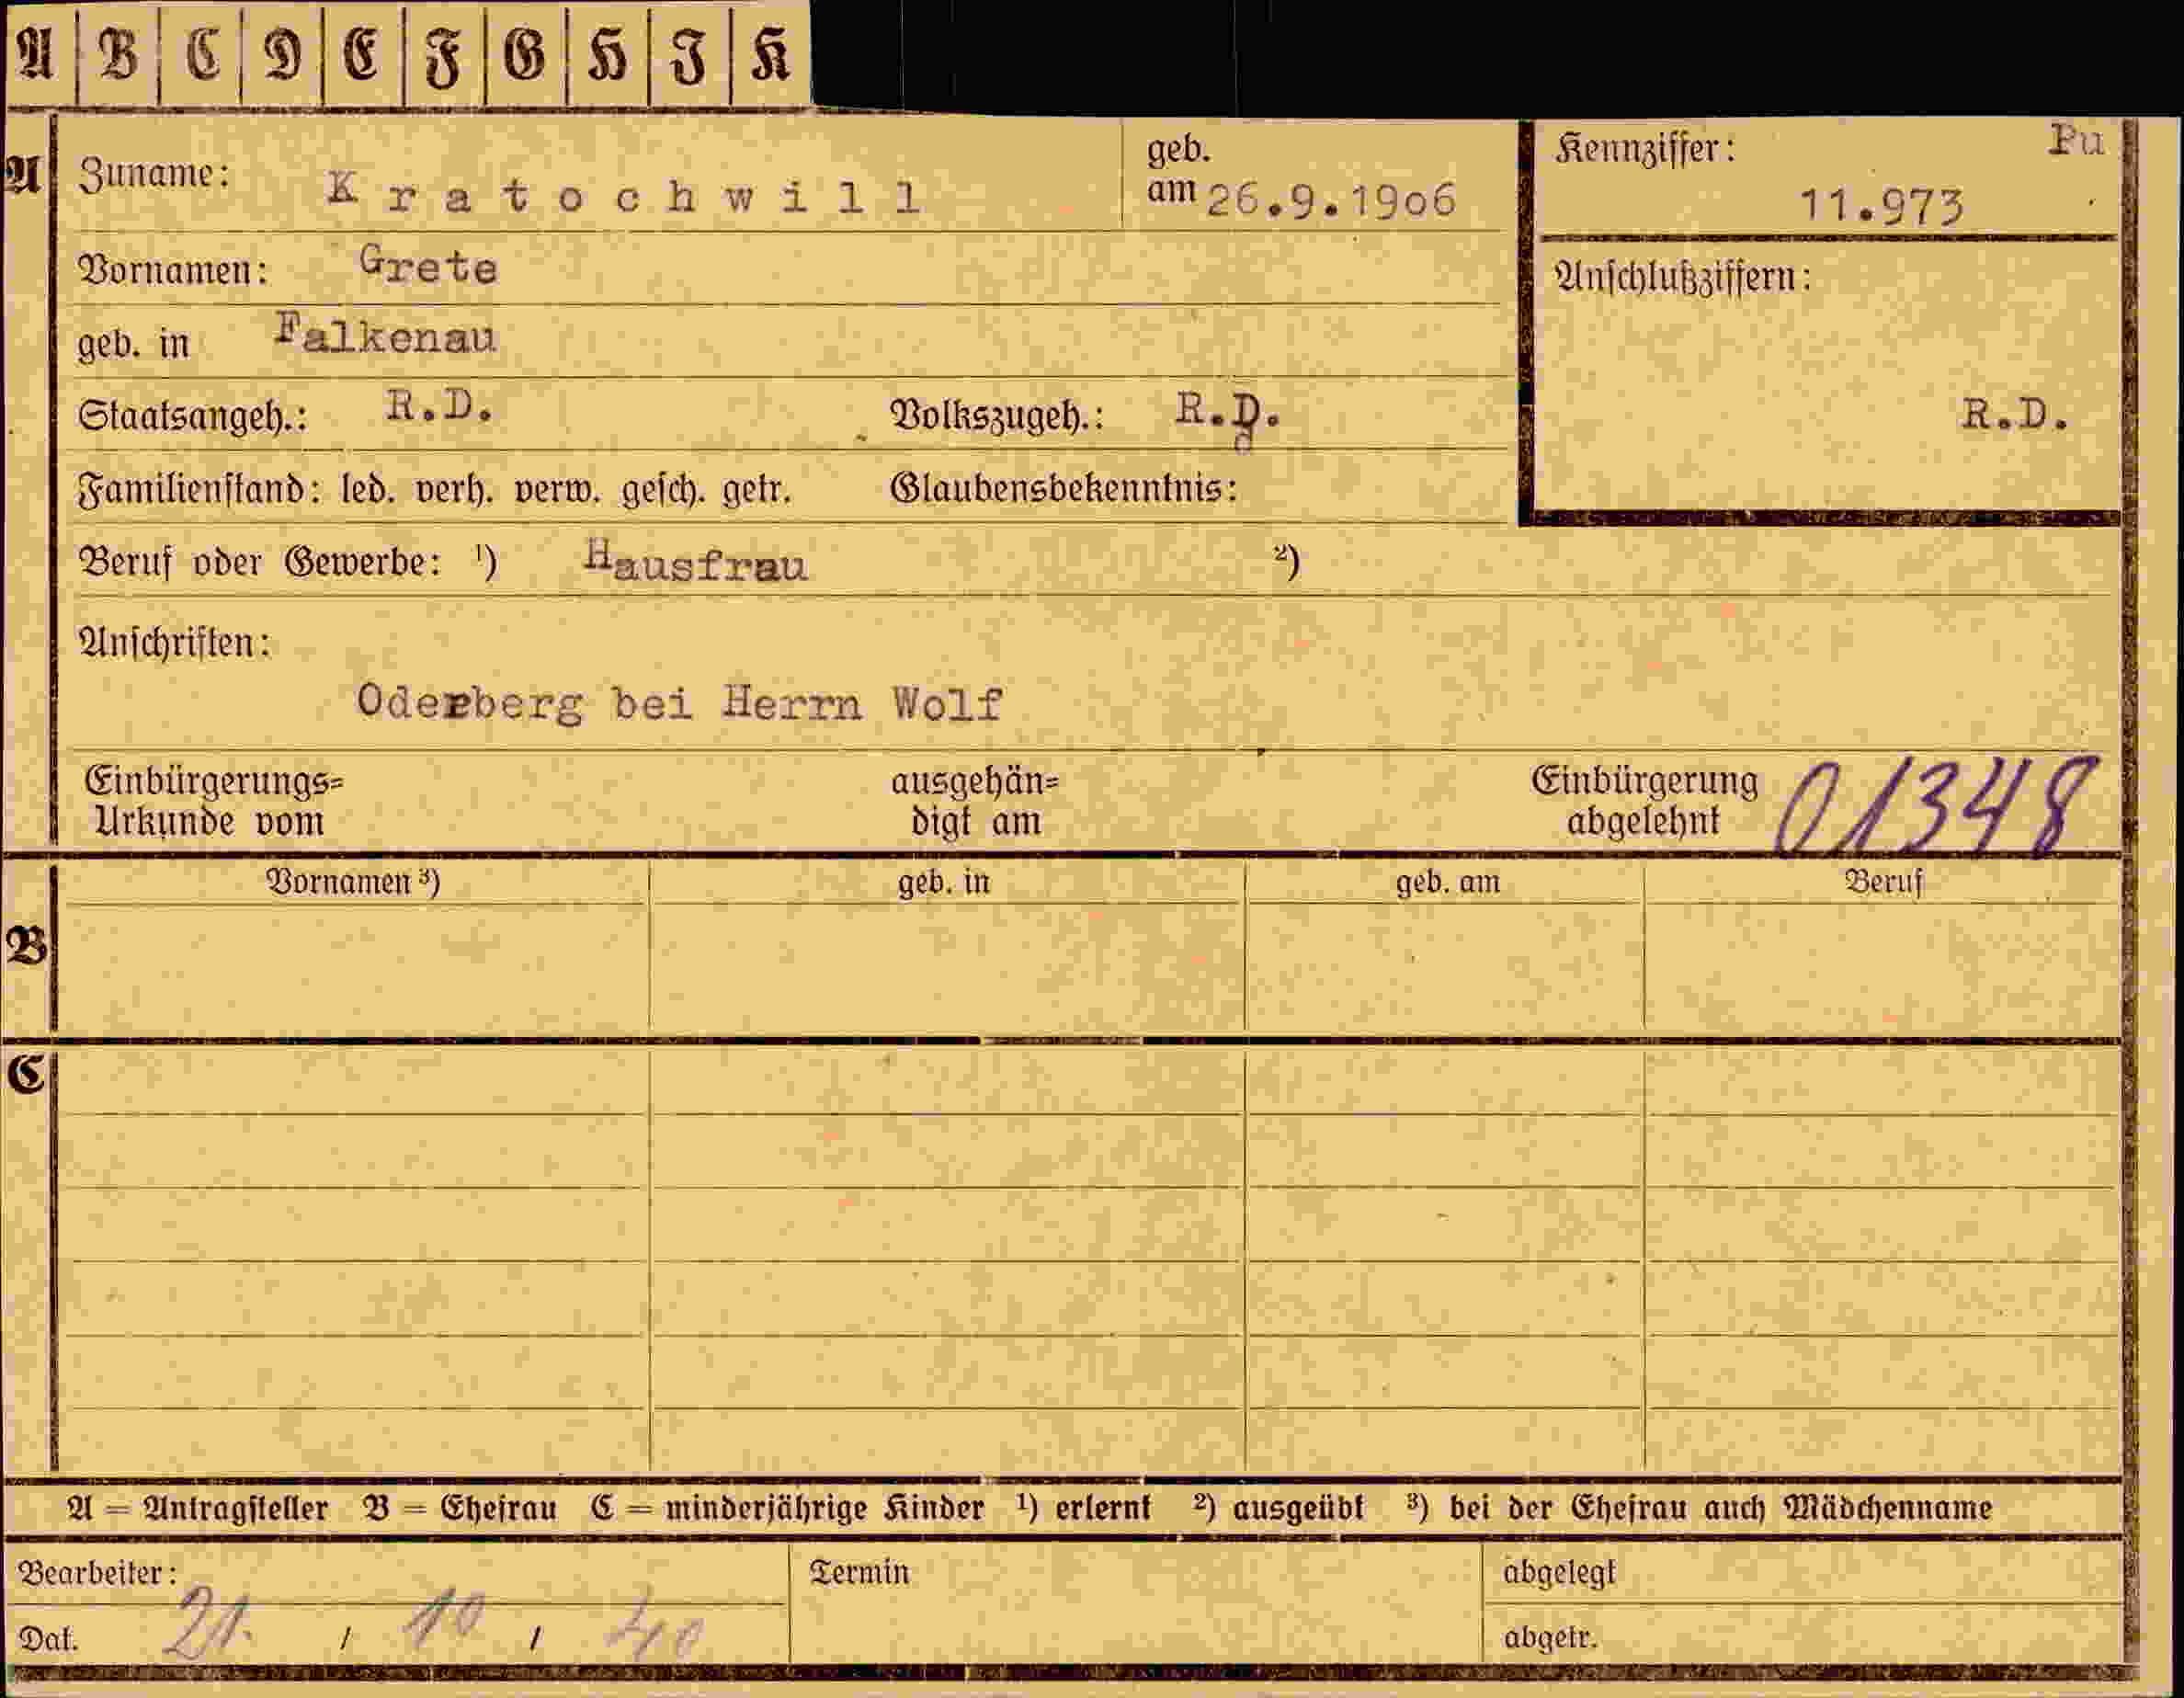 A B C D E F G H I K
A Zuname: Kratochwill geb. am 26.9.1906 Kennziffer: Pu 11.973
Vornamen: Grete
Anschlußziffern:
geb. in Falkenau
Staatsangeh.: R.D. Volkszugeh.: R.D. R.D.
Familienstand: led. verh. verw. gesch. getr. Glaubensbekenntnis:
Beruf oder Gewerbe: ¹) Hausfrau ²)
Anschriften:
Oderberg bei Herrn Wolf
Einbürgerungs= ausgehän= Einbürgerung 01348
Urkunde vom digt am abgelehnt
Vornamen ³) geb. in geb. am Beruf
B
C
A = Antragsteller B = Ehefrau C = minderjährige Kinder ¹) erlernt ²) ausgeübt ³) bei der Ehefrau auch Mädchenname
Bearbeiter: Termin abgelegt
Dat. 21. / 10 / 40 abgetr.